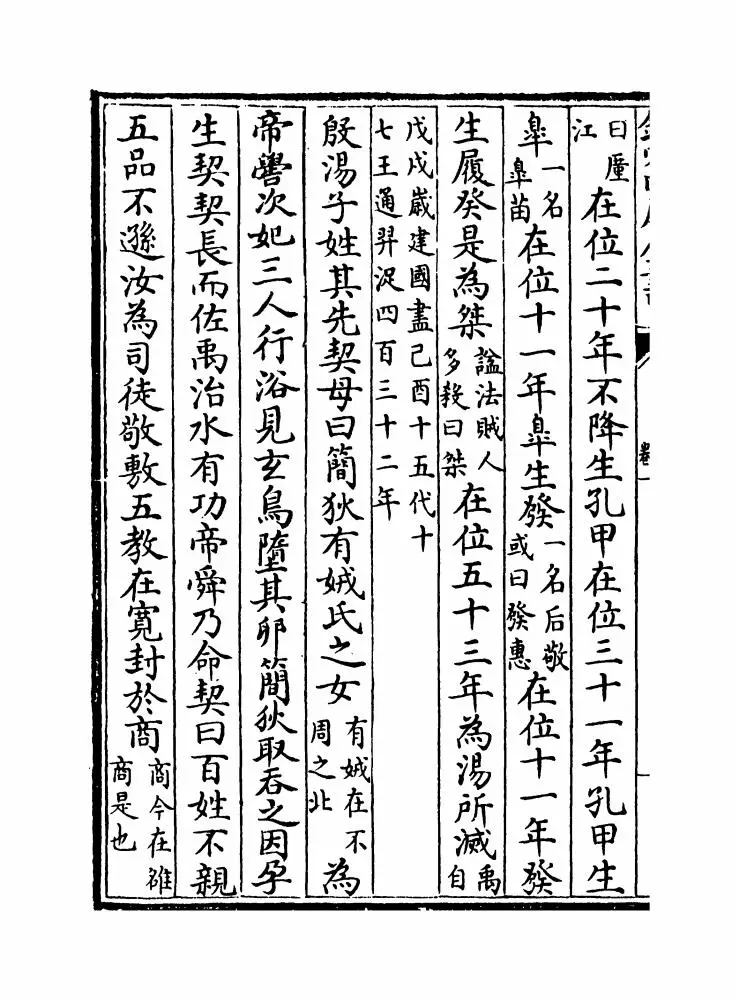 曰廑江在位二十年不降生孔甲在位三十一年孔甲生
皐一名皐苗在位十一年皐生發一名后敬或曰發惠在位十一年發
生履癸是為桀諡法賊人多殺曰桀在位五十三年為湯所滅禹自
戊戌嵗建國盡己酉十五代十七王通羿浞四百三十二年
殷湯子姓其先契母曰簡狄有娀氏之女有娀在不周之北為
帝嚳次妃三人行浴見玄鳥墮其卵簡狄取吞之因孕
生契契長而佐禹治水有功帝舜乃命契曰百姓不親
五品不遜汝為司徒敬敷五教在寛封於商商今在雒商是也